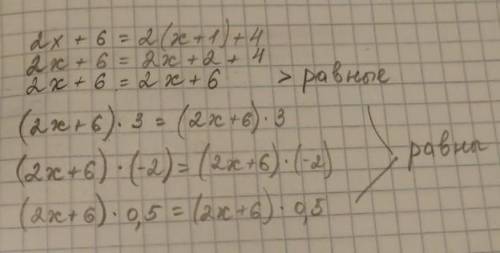 2x + 6 = 2(x+1)+4
2x + 6 = 2x + 2 + 4
2x + 6 = 2x + 6 > равные
(2x+6)·3 = (2x+6)·3
(2x+6)·(-2) = (2x+6)·(-2) равны
(2x+6)·0,5 = (2x+6)·0,5